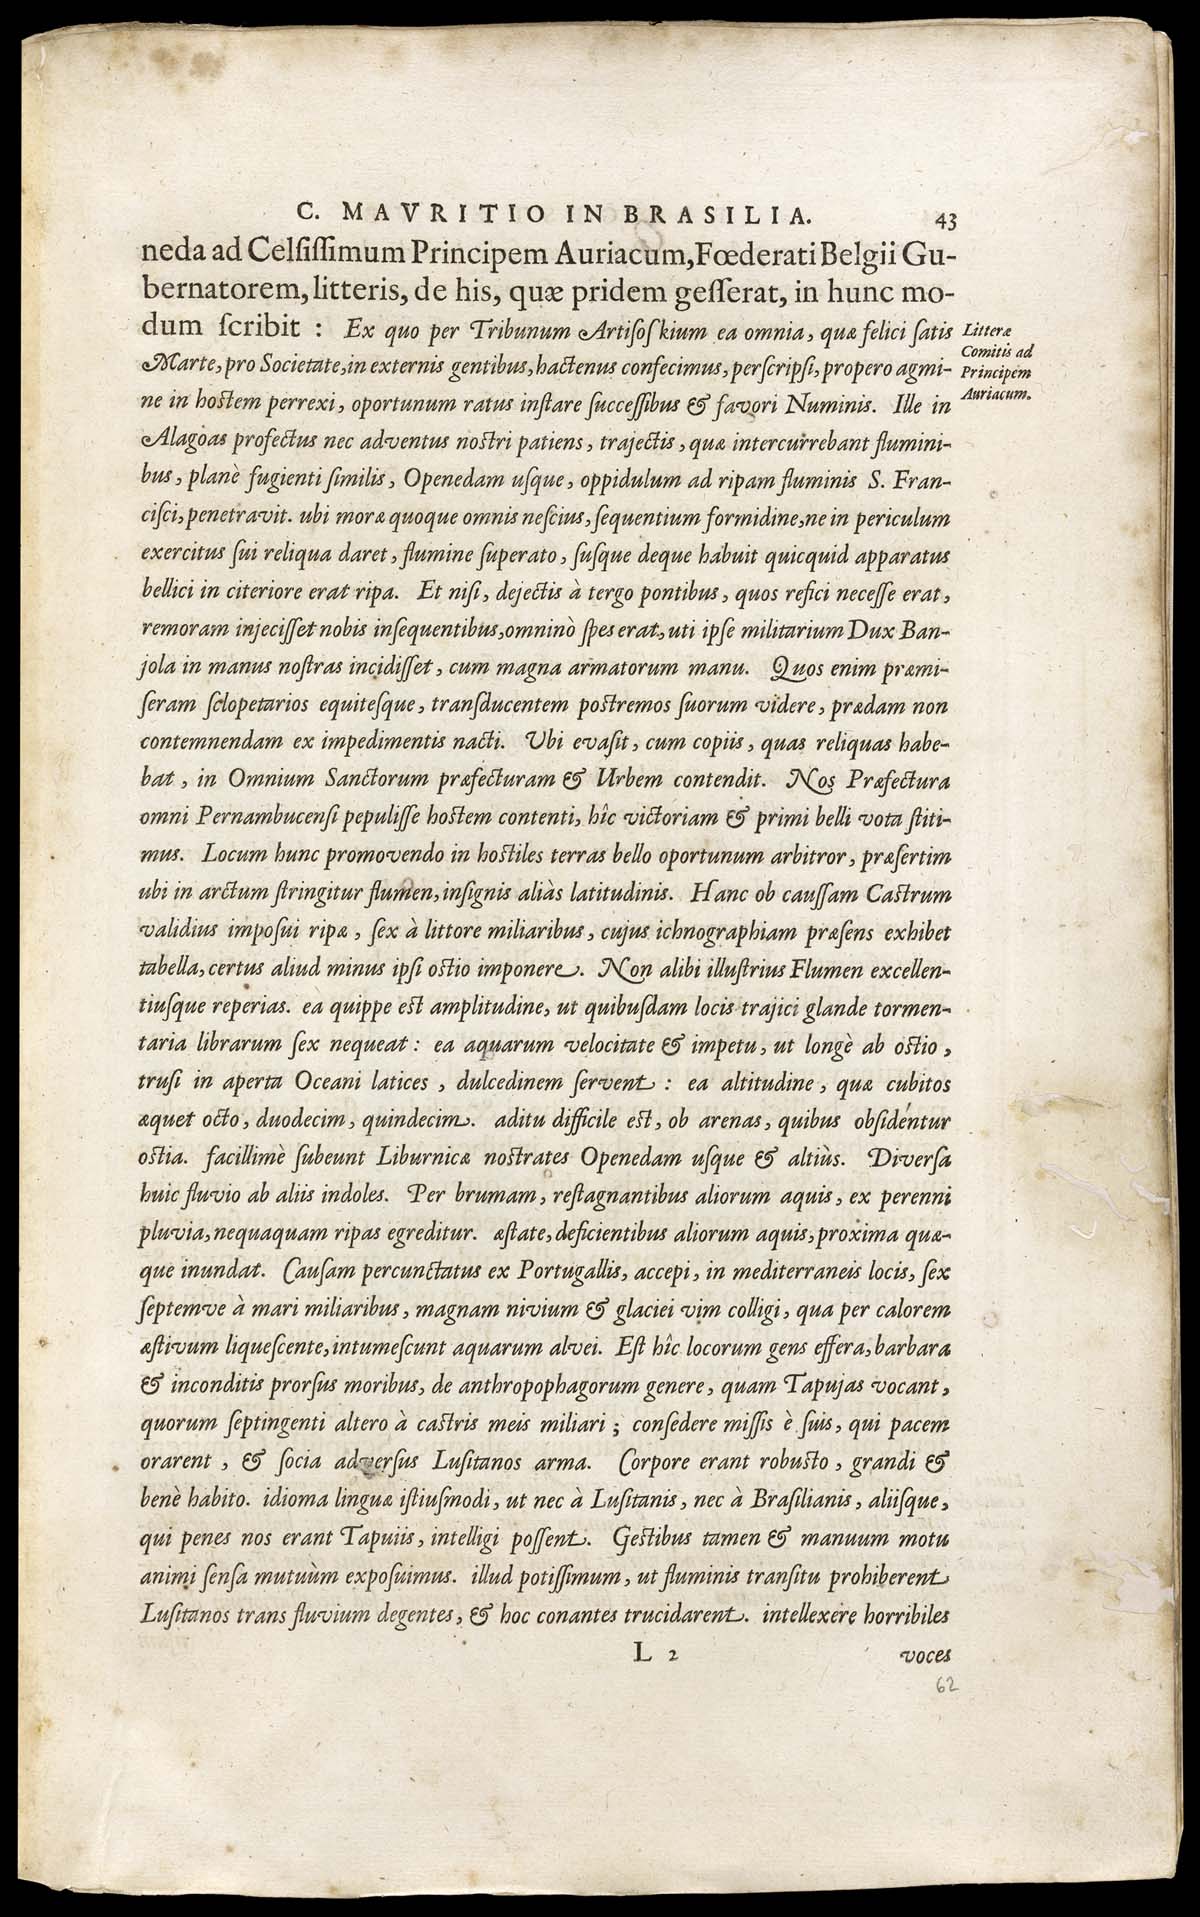 C. MAVRITIO IN BRASILIA. 43
neda ad Celſiſſimum Principem Auriacum, Fœderati Belgii Gu-
bernatorem, litteris, de his, quæ pridem geſſerat, in hunc mo-
dum ſcribit : Ex quo per Tribunum Artiſoſkium ea omnia, quæ felici ſatis
Litteræ
Comitis ad
Principem
Auriacum.
Marte, pro Societate, in externis gentibus, hactenus confecimus, perſcripſi, propero agmi-
ne in hostem perrexi, oportunum ratus inſtare ſucceſſibus & favori Numinis. Ille in
Alagoas profectus nec adventus nostri patiens, trajectis, quæ intercurrebant flumini-
bus, planè fugienti ſimilis, Openedam uſque, oppidulum ad ripam fluminis S. Fran-
ciſci, penetravit. ubi moræ quoque omnis neſcius, ſequentium formidine, ne in periculum
exercitus ſui reliqua daret, flumine ſuperato, ſuſque deque habuit quicquid apparatus
bellici in citeriore erat ripa. Et niſi, dejectis à tergo pontibus, quos refici neceſſe erat,
remoram injeciſſet nobis inſequentibus, omninò ſpes erat, uti ipſe militarium Dux Ban-
jola in manus noſtras incidiſſet, cum magna armatorum manu. Quos enim præmi-
ſeram ſclopetarios equiteſque, tranſducentem postremos ſuorum videre, prædam non
contemnendam ex impedimentis nacti. Ubi evaſit, cum copiis, quas reliquas habe-
bat, in Omnium Sanctorum præfecturam & Urbem contendit. Nos Præfectura
omni Pernambucenſi pepuliſſe hostem contenti, hîc victoriam & primi belli vota ſtiti-
mus. Locum hunc promovendo in hostiles terras bello oportunum arbitror, præſertim
ubi in arctum ſtringitur flumen, inſignis aliàs latitudinis. Hanc ob cauſſam Castrum
validius impoſui ripæ, ſex à littore miliaribus, cujus ichnographiam præſens exhibet
tabella, certus aliud minus ipſi ostio imponere. Non alibi illuſtrius Flumen excellen-
tiuſque reperias. eà quippe est amplitudine, ut quibuſdam locis trajici glande tormen-
taria librarum ſex nequeat: ea aquarum velocitate & impetu, ut longè ab ostio,
truſi in aperta Oceani latices, dulcedinem ſervent : ea altitudine, quæ cubitos
æquet octo, duodecim, quindecim. aditu difficile est, ob arenas, quibus obſidéntur
ostia. facillimè ſubeunt Liburnicæ nostrates Openedam uſque & altiùs. Diverſa
huic fluvio ab aliis indoles. Per brumam, reſtagnantibus aliorum aquis, ex perenni
pluvia, nequaquam ripas egreditur. æſtate, deficientibus aliorum aquis, proxima quæ-
que inundat. Cauſam percunctatus ex Portugallis, accepi, in mediterraneis locis, ſex
ſeptemve à mari miliaribus, magnam nivium & glaciei vim colligi, qua per calorem
æſtivum liqueſcente, intumeſcunt aquarum alvei. Eſt hîc locorum gens effera, barbara
& inconditis prorſus moribus, de anthropophagorum genere, quam Tapujas vocant,
quorum ſeptingenti altero à castris meis miliari ; conſedere miſſis è ſuis, qui pacem
orarent, & ſocia adverſus Luſitanos arma. Corpore erant robusto, grandi &
benè habito. idioma linguæ iſtiuſmodi, ut nec à Luſitanis, nec à Braſilianis, aliiſque,
qui penes nos erant Tapuiis, intelligi poſſent. Gestibus tamen & manuum motu
animi ſenſa mutuùm expoſuimus. illud potiſſimum, ut fluminis tranſitu prohiberent
Luſitanos trans fluvium degentes, & hoc conantes trucidarent. intellexere horribiles
L 2 voces
62